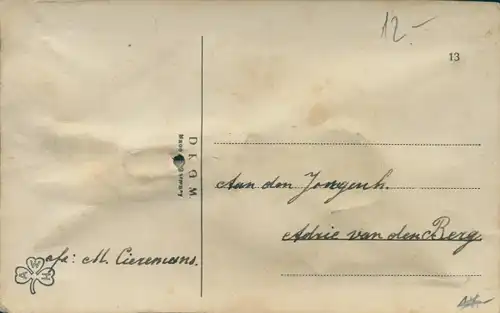 12.-
13
D. R. G. M.
Made in Germany
Aan den Jongenh.
Adrie van den Berg.
afz: M. Cieremans.
A R H